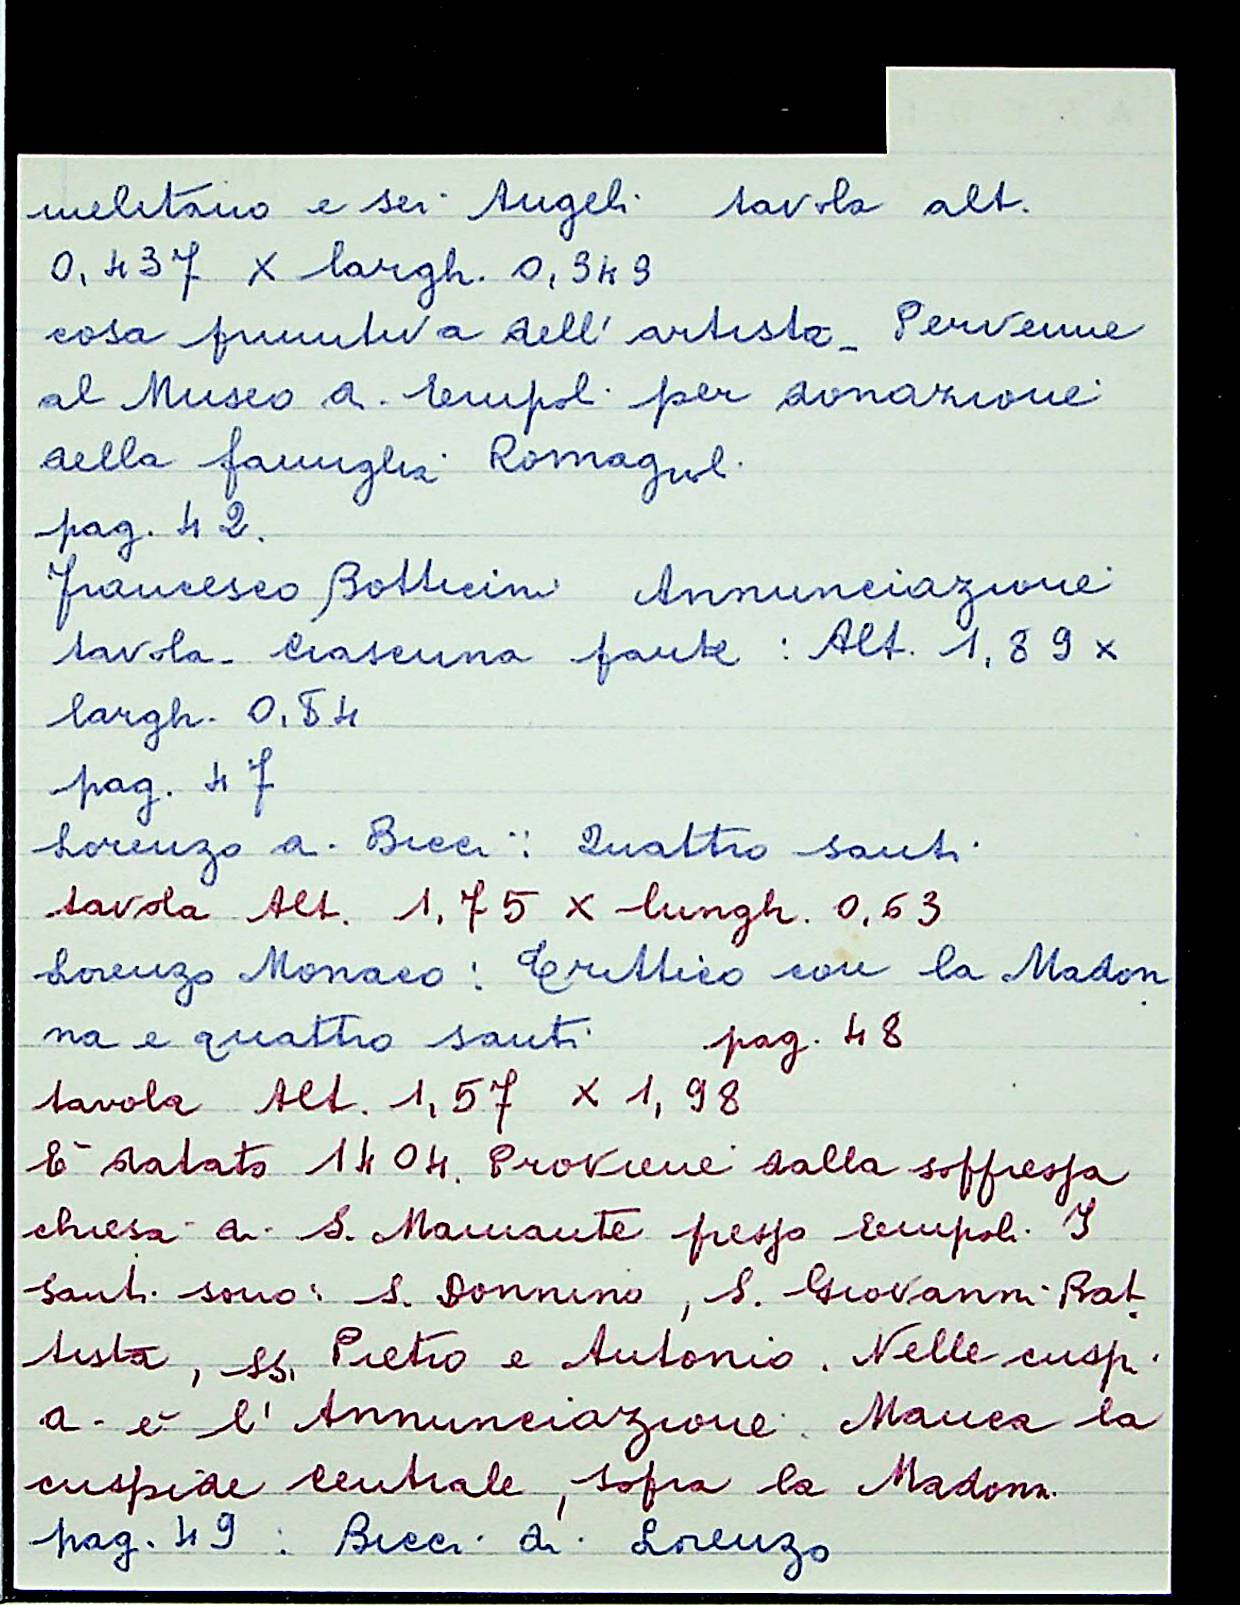 melitano e sei Angeli tavola alt.
0,437 x largh. 0,343
cosa primitiva dell'artista_ Pervenne
al Museo di Empoli per donazione
della famiglia Romagnoli
pag. 42.
Francesco Botticini Annunciazione
tavola_ Ciascuna parte : Alt. 1,89 x
largh. 0.54
pag. 47
Lorenzo di Bicci : Quattro santi
tavola Alt. 1,75 x lungh. 0,63
Lorenzo Monaco : Trittico con la Madon
na e quattro santi pag. 48
tavola Alt. 1,57 x 1,98
E' datato 1404. Proviene dalla soppressa
chiesa di S. Mamante presso Empoli. I
santi sono : S. Donnino, S. Giovanni Bat
tista, SS. Pietro e Antonio. Nelle cuspi
di è l'Annunciazione. Manca la
cuspide centrale, sopra la Madonn.
pag. 49 : Bicci di Lorenzo